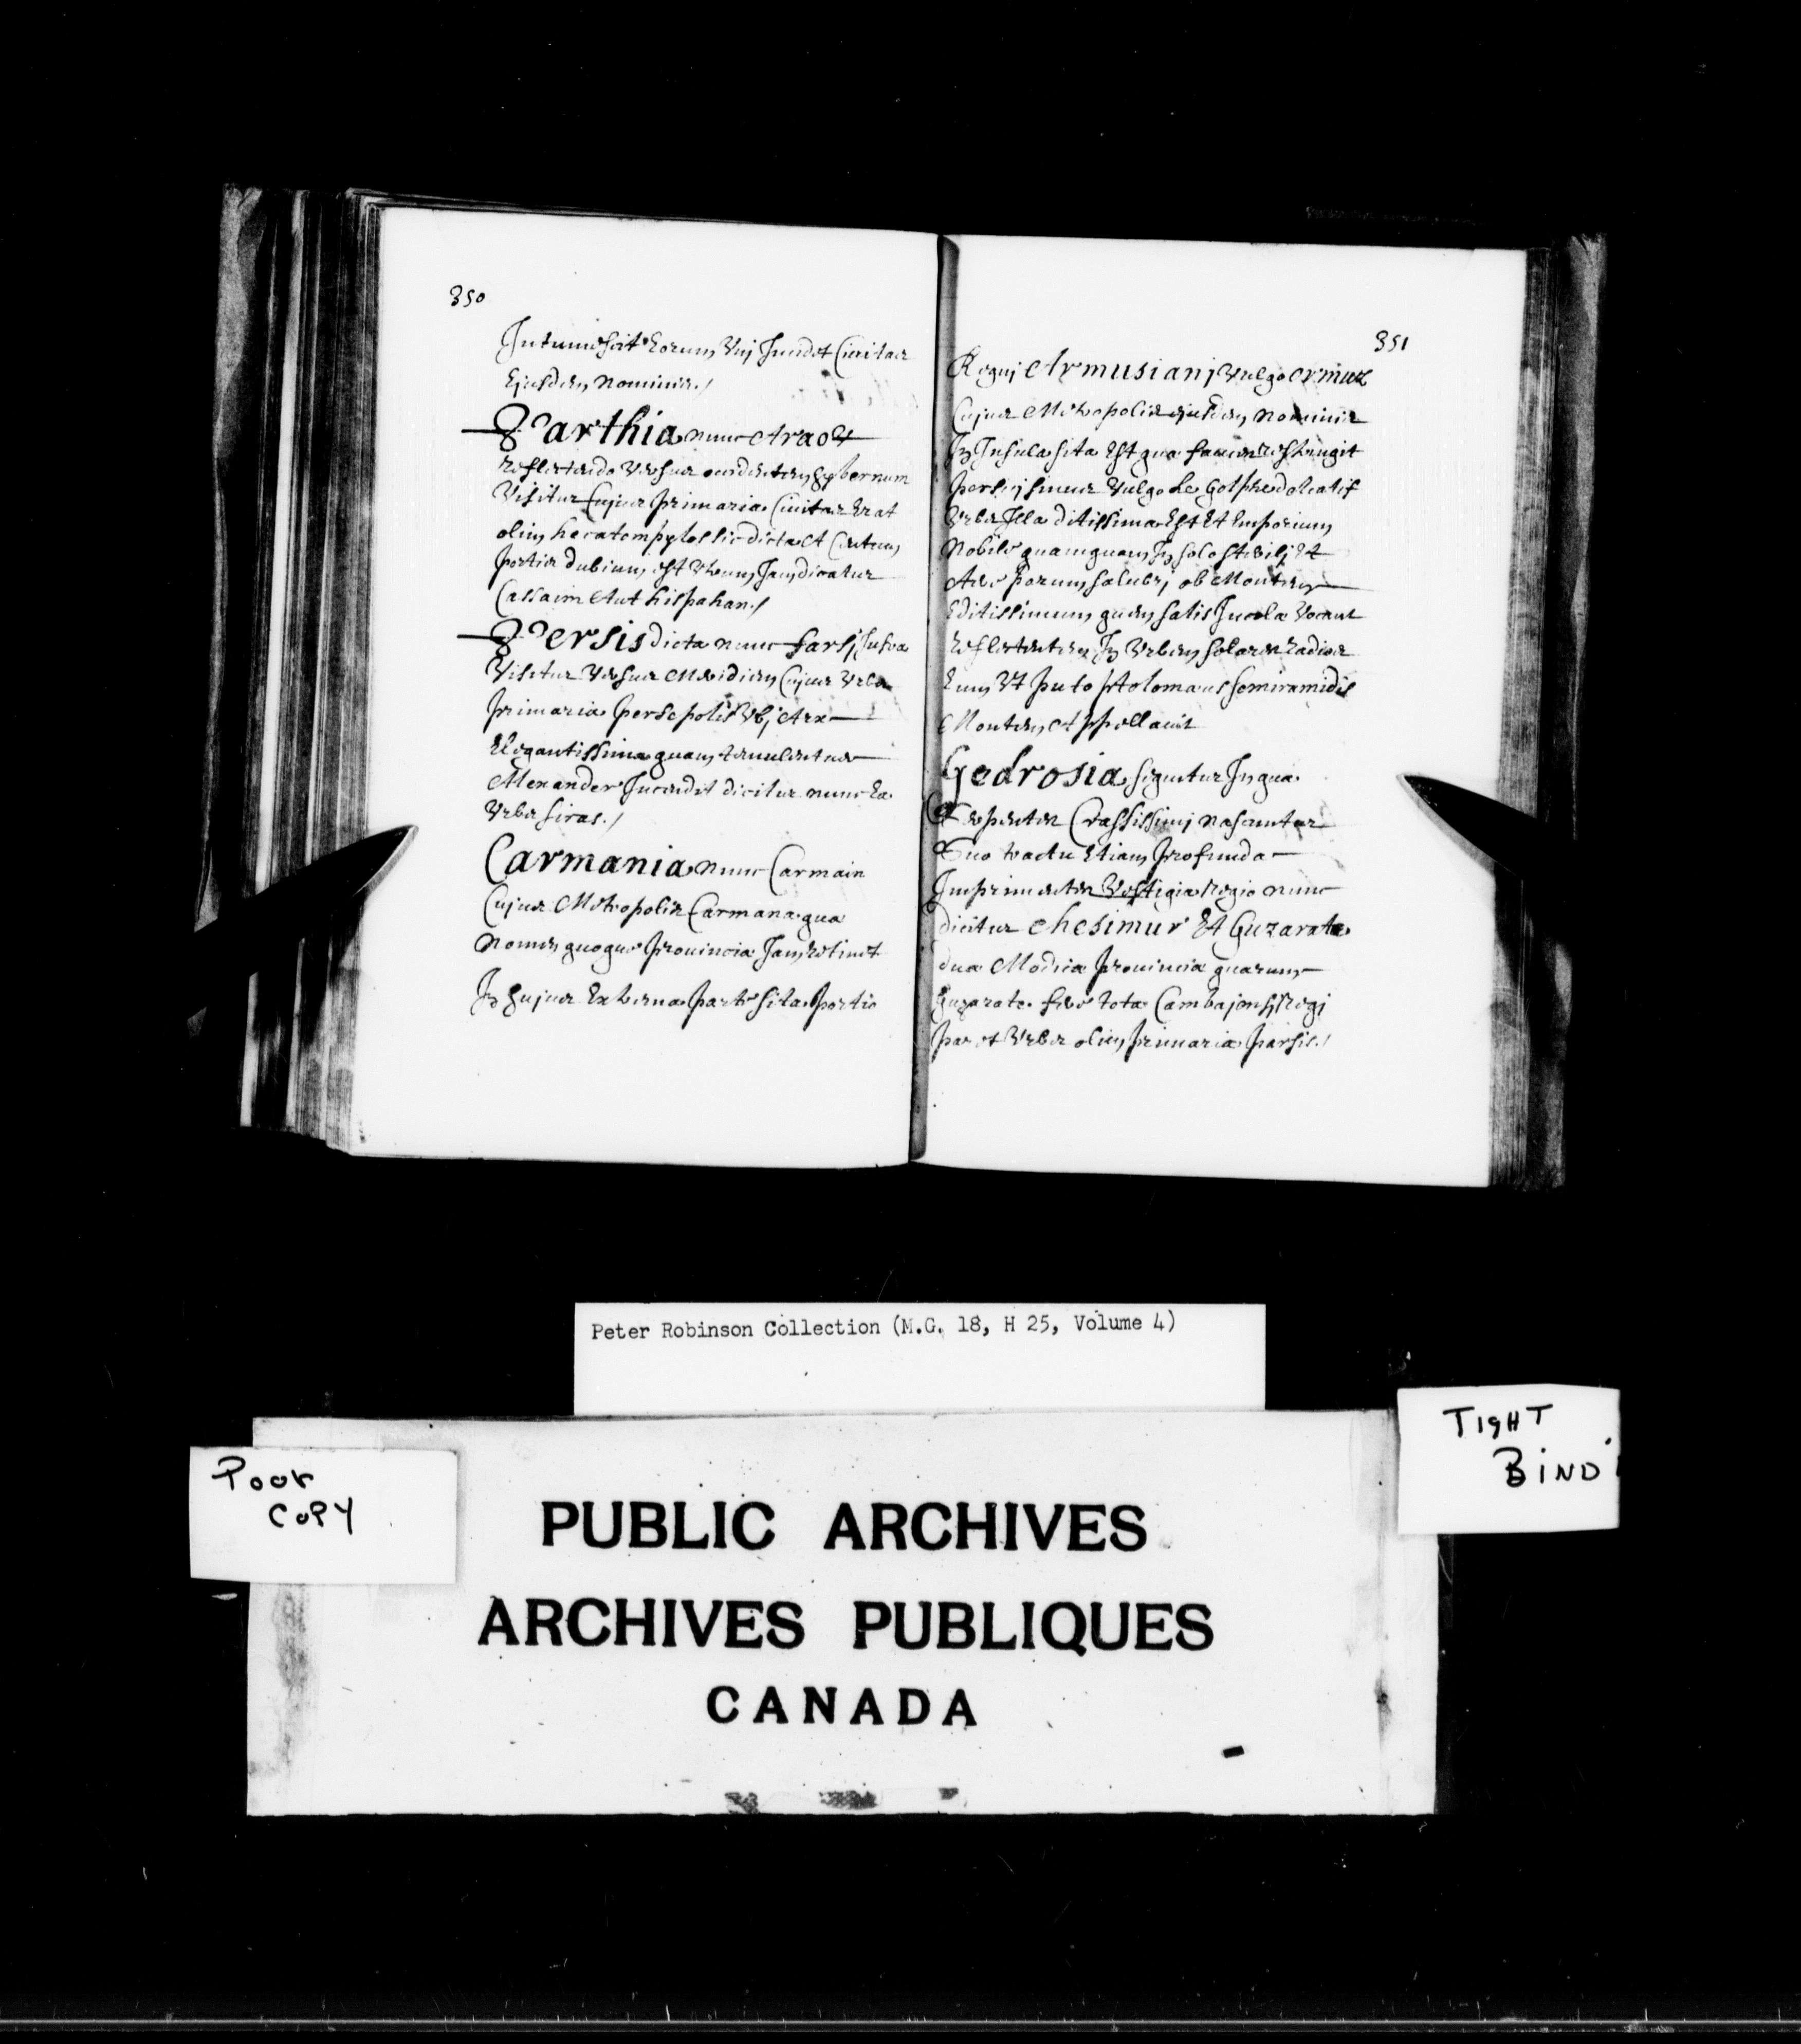 350
Intumescit Eorum Vnj Incidet Civitas
Ejusdem Nominis./
Parthia nunc Arach
reflectendo Versus occidentem hybernum
Visitur Cujus primaria Civitas Erat
olim hecatompylos sic dicta et Centum
portis dubium est Vtrum Jam dicatur
Cassaim Aut hispahan./
Persis dicta nunc farsj Infra
Visitur Versus Meridiem Cujus Vrbs
primaria persepolis Vbj Arx
Elegantissima quam temulentus
Alexander Incendit dicitur nunc Ea
Vrbs siras./
Carmania nunc Carmain
Cujus Metropolis Carmana qua
Nomen quoque provincia Jam retinet
In hujus Externa parte sita portio
351
Regnj Armusianj Vulgo ormuz
Cujus Metropolis ejusdem Nominis
In Insula sita Est qua fauces restringit
persicj sinus Vulgo Le Golphe delcatif
Vrbs Illa ditissima Est Et Emporium
Nobile quamquam In solo sterilj Et
Aere parum salubrj ob Montem
Editissimum quem satis Incola Vocant
reflectentem In Vrbem solares radios
Eum Vt puto ptolomaeus semiramidis
Montem Appellavit
Gedrosia sequitur In qua
serpentes Crassissimj nascuntur
suo tractu Etiam profunda
Imprimentes Vestigia Regio nunc
dicitur chesimur Et Guzarate
dua Modica provincia quarum
Guzarate fere tota Cambajensj Regj
paret Vrbs olim primaria parsis./
Peter Robinson Collection (M.G. 18, H 25, Volume 4)
TIGHT
BIND
POOR
COPY
PUBLIC ARCHIVES
ARCHIVES PUBLIQUES
CANADA